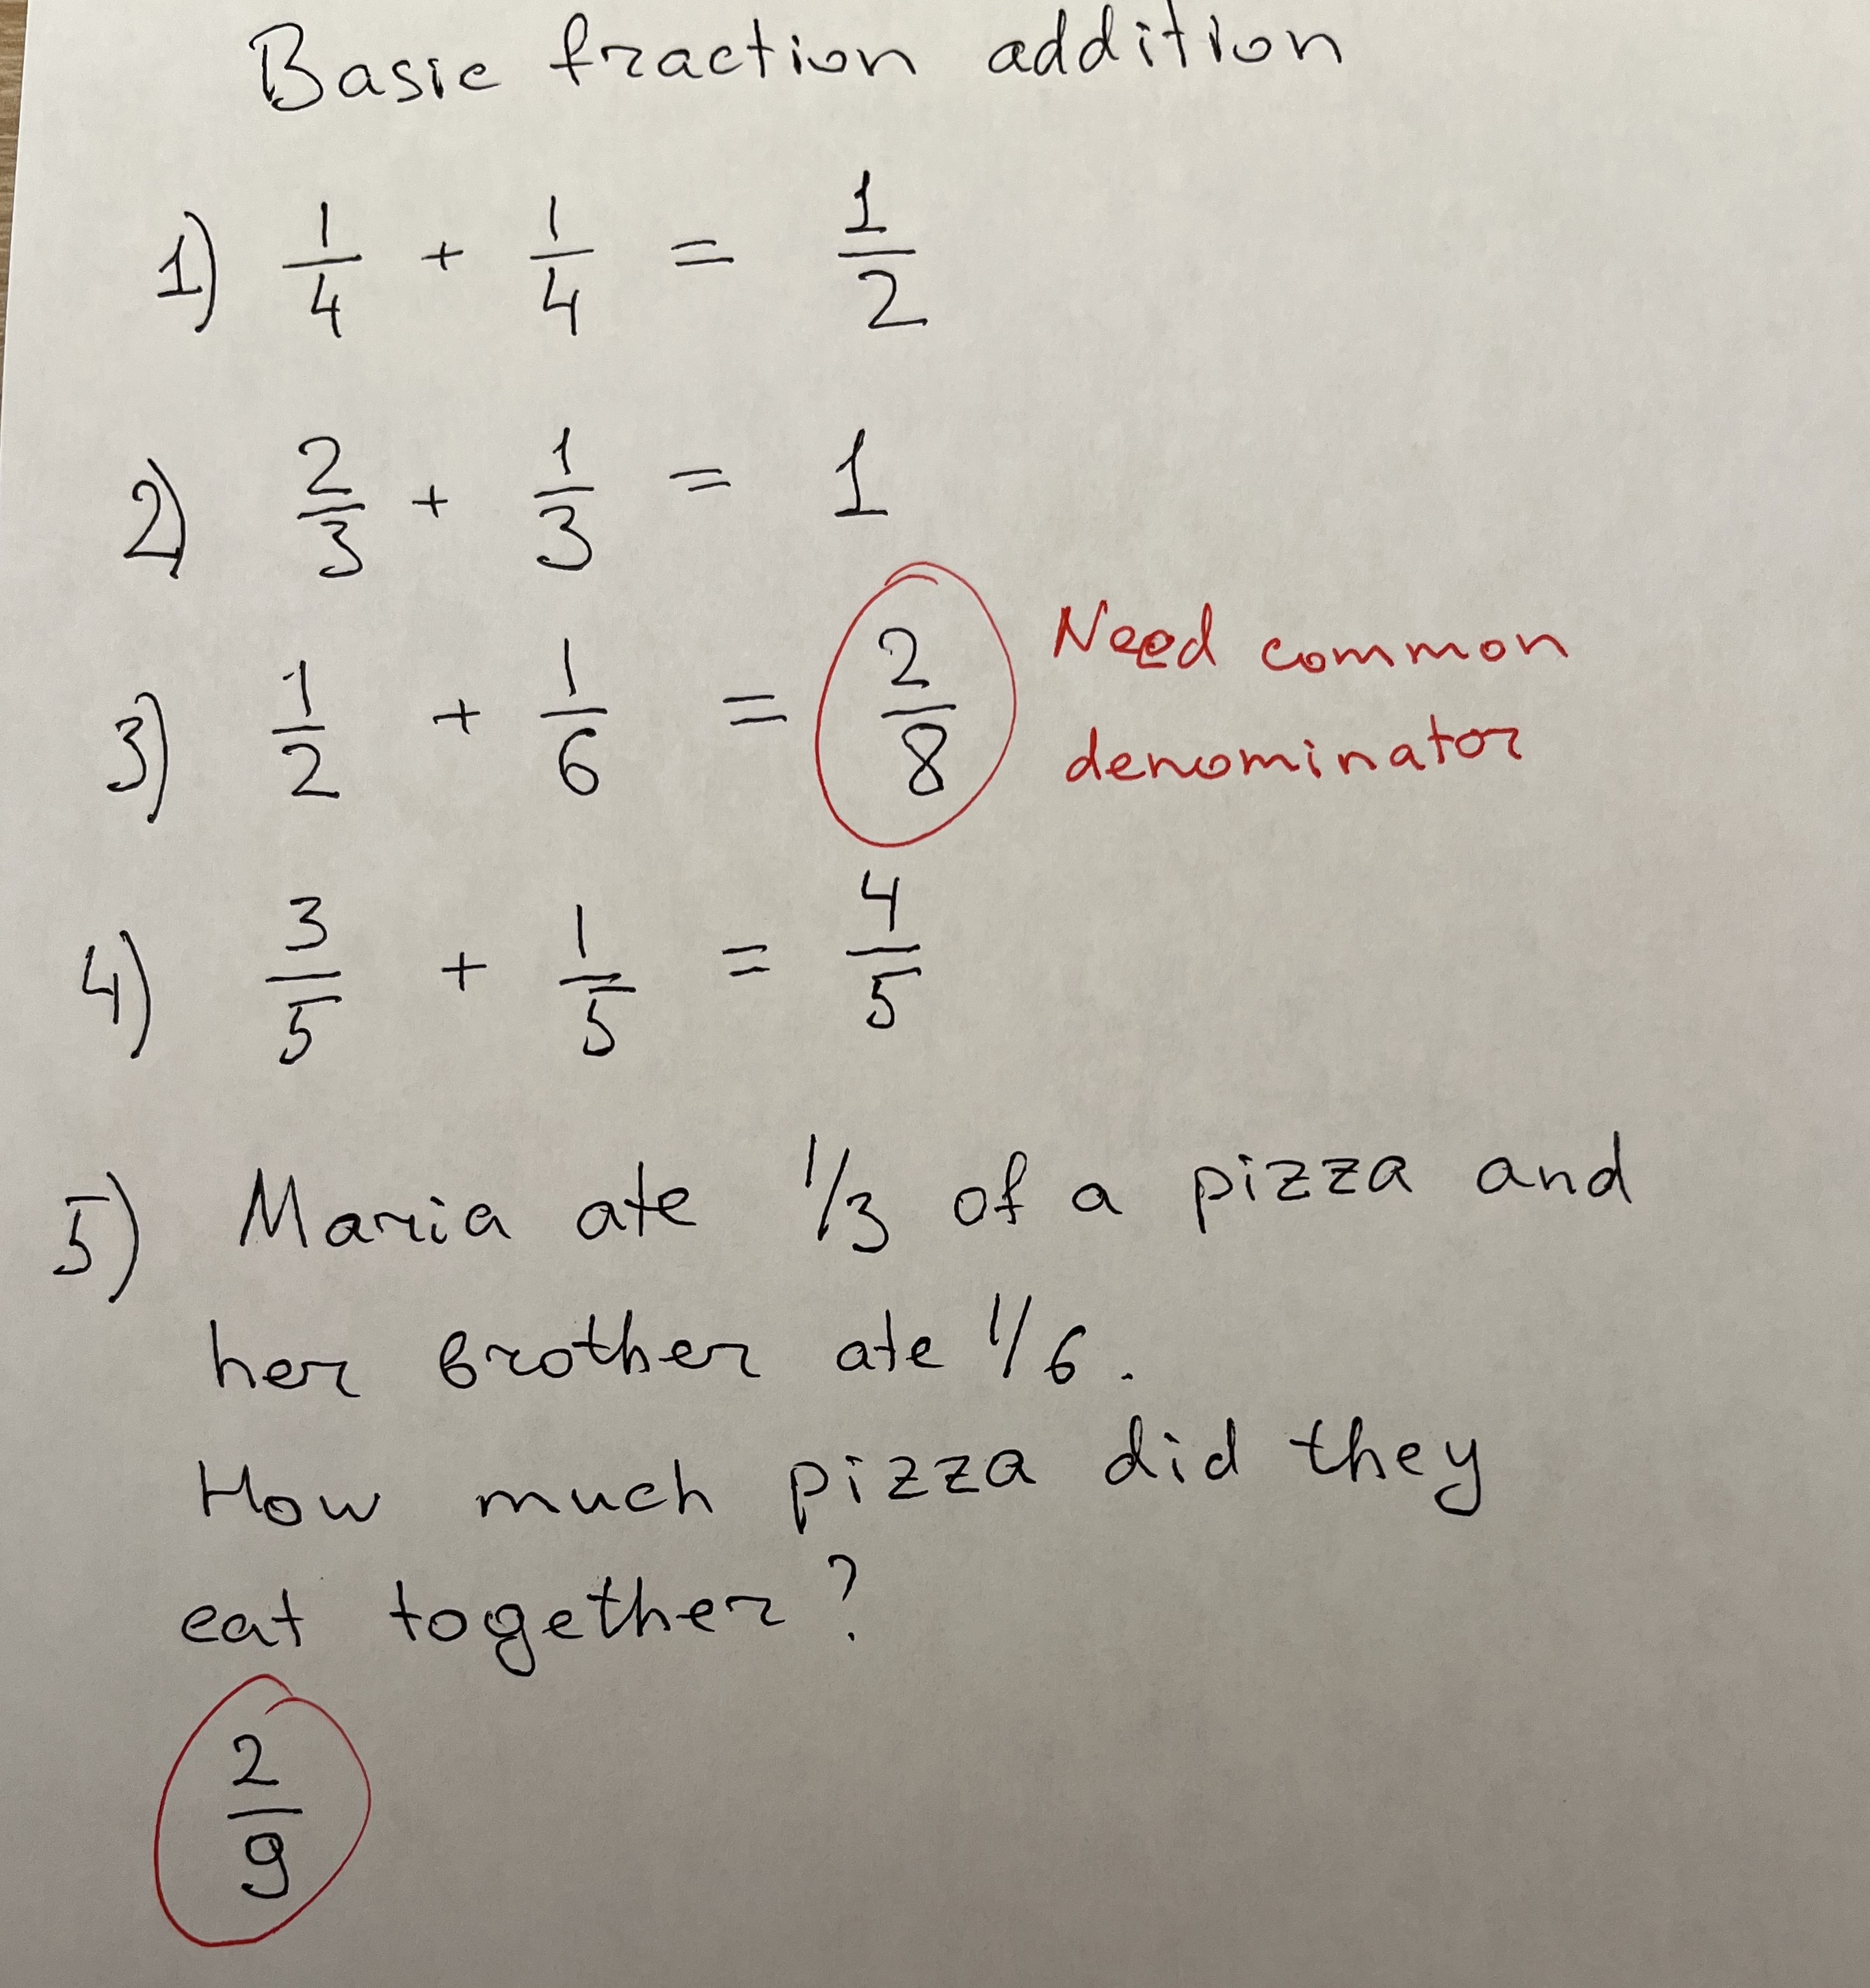 Basic fraction addition
1) 1/4 + 1/4 = 1/2
2) 2/3 + 1/3 = 1
3) 1/2 + 1/6 = 2/8 Need common
denominator
4) 3/5 + 1/5 = 4/5
5) Maria ate 1/3 of a pizza and
her brother ate 1/6.
How much pizza did they
eat together?
2/9